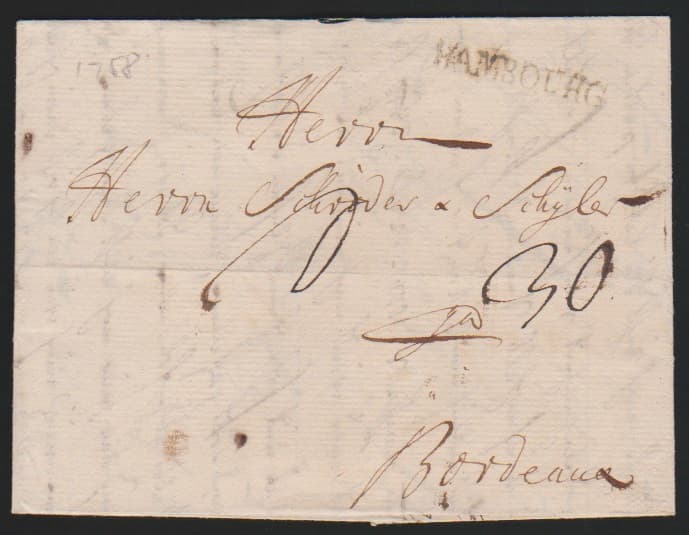 1768
HAMBOURG
Herrn
Herrn Schröder & Schÿler
30
Bordeaux